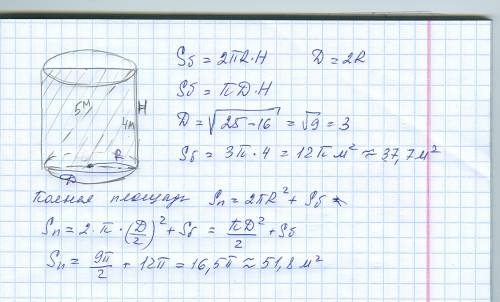 Sб = 2πR·H D = 2R
Sб = πD·H
5м
H
4м
D = √25-16 = √9 = 3
R
Sб = 3π·4 = 12π м² ≈ 37,7 м²
D
Полная площадь Sп = 2πR² + Sб
Sп = 2·π·(D/2)² + Sб = πD²/2 + Sб
Sп = 9π/2 + 12π = 16,5π ≈ 51,8 м²